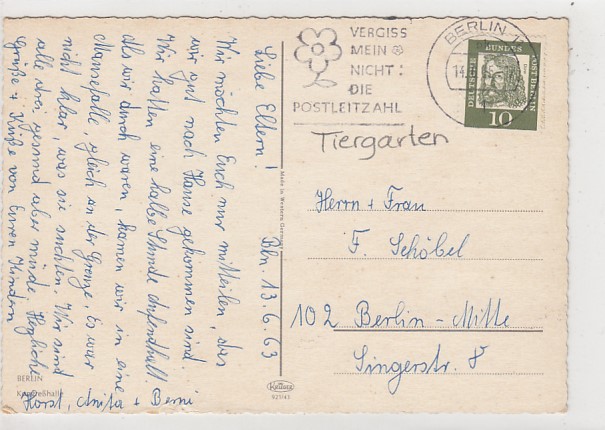 Bln. 13.6.63
Liebe Eltern!
Wir möchten Euch nur mitteilen, das
wir gut nach Hause gekommen sind.
Wir hatten eine halbe Stunde Aufenthalt.
Als wir durch waren, kamen wir in eine
Mausefalle, gleich an der Grenze, Es war
nicht klar, was sie suchten. Wir sind
alle drei gesund aber müde. Herzliche
Grüße + Küße von Euren Kindern
Horst, Anita + Berni
BERLIN
Kongreßhalle
Made in Western Germany
Krüger
921/43
VERGISS
MEIN
NICHT:
DIE
POSTLEITZAHL
BERLIN
14.
DEUTSCHE BUNDESPOST BERLIN
10
Tiergarten
Herrn + Frau
F. Schöbel
102 Berlin - Mitte
Singerstr. 8